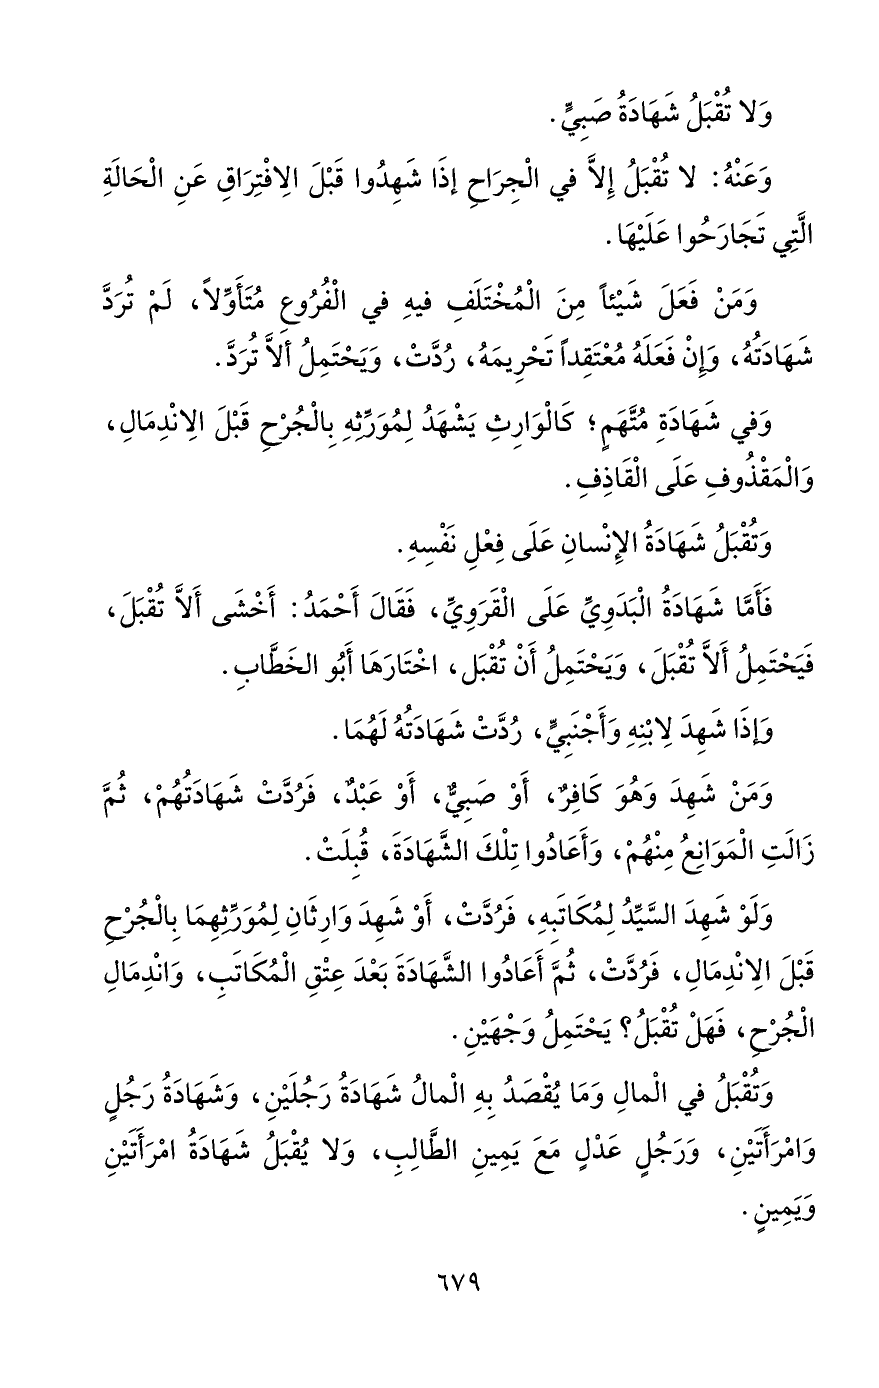 وَلا تُقْبَلُ شَهَادَةُ صَبِيٍّ.
وَعَنْهُ: لا تُقْبَلُ إِلاَّ في الْجِرَاحِ إذَا شَهِدُوا قَبْلَ الِافْتِرَاقِ عَنِ الْحَالَةِ
الَّتِي تَجَارَحُوا عَلَيْهَا.
وَمَنْ فَعَلَ شَيْئاً مِنَ الْمُخْتَلَفِ فيهِ في الْفُرُوعِ مُتَأَوِّلاً، لَمْ تُرَدَّ
شَهَادَتُهُ، وَإِنْ فَعَلَهُ مُعْتَقِداً تَحْرِيمَهُ، رُدَّتْ، وَيَحْتَمِلُ ألاَّ تُرَدَّ.
وَفي شَهَادَةِ مُتَّهَمٍ؛ كَالْوَارِثِ يَشْهَدُ لِمُوَرِّثِهِ بِالْجُرْحِ قَبْلَ الِانْدِمَالِ،
وَالْمَقْذُوفِ عَلَى الْقَاذِفِ.
وَتُقْبَلُ شَهَادَةُ الإِنْسانِ عَلَى فِعْلِ نَفْسِهِ.
فَأَمَّا شَهَادَةُ الْبَدَوِيِّ عَلَى الْقَرَوِيِّ، فَقَالَ أَحْمَدُ: أَخْشَى أَلاَّ تُقْبَلَ،
فَيَحْتَمِلُ أَلاَّ تُقْبَلَ، وَيَحْتَمِلُ أَنْ تُقْبَل، اخْتَارَهَا أَبُو الخَطَّابِ.
وَإِذَا شَهِدَ لِابْنِهِ وَأَجْنَبِيٍّ، رُدَّتْ شَهَادَتُهُ لَهُمَا.
وَمَنْ شَهِدَ وَهُوَ كَافِرٌ، أَوْ صَبِيٌّ، أَوْ عَبْدٌ، فَرُدَّتْ شَهَادَتُهُمْ، ثُمَّ
زَالَتِ الْمَوَانِعُ مِنْهُمْ، وَأَعَادُوا تِلْكَ الشَّهَادَةَ، قُبِلَتْ.
وَلَوْ شَهِدَ السَّيِّدُ لِمُكَاتَبِهِ، فَرُدَّتْ، أَوْ شَهِدَ وَارِثَانِ لِمُوَرِّثِهِمَا بِالْجُرْحِ
قَبْلَ الِانْدِمَالِ، فَرُدَّتْ، ثُمَّ أَعَادُوا الشَّهَادَةَ بَعْدَ عِتْقِ الْمُكَاتَبِ، وَانْدِمَالِ
الْجُرْحِ، فَهَلْ تُقْبَلُ؟ يَحْتَمِلُ وَجْهَيْنِ.
وَتُقْبَلُ في الْمالِ وَمَا يُقْصَدُ بِهِ الْمالُ شَهَادَةُ رَجُلَيْنِ، وَشَهَادَةُ رَجُلٍ
وَامْرَأَتَيْنِ، وَرَجُلٍ عَدْلٍ مَعَ يَمِينِ الطَّالِبِ، وَلا يُقْبَلُ شَهَادَةُ امْرَأَتَيْنِ
وَيَمِينٍ.
٦٧٩